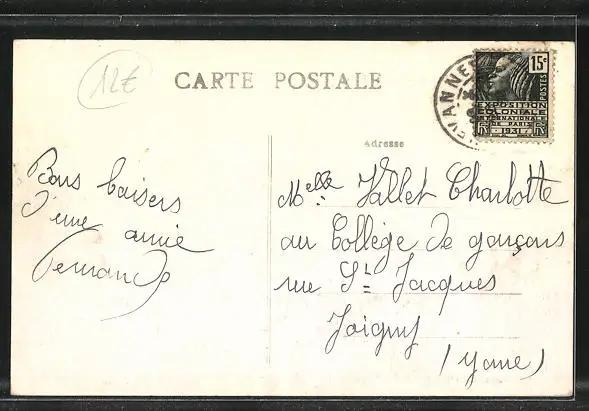 12€
CARTE POSTALE
EVANNES
15c
POSTES
EXPOSITION
COLONIALE
INTERNATIONALE
DE PARIS
1931
RF RF
Adresse
Bons baisers
d'une amie
Fernande
Melle Vallet Charlotte
au Collège de garçons
rue St Jacques
Joigny
(Yonne)